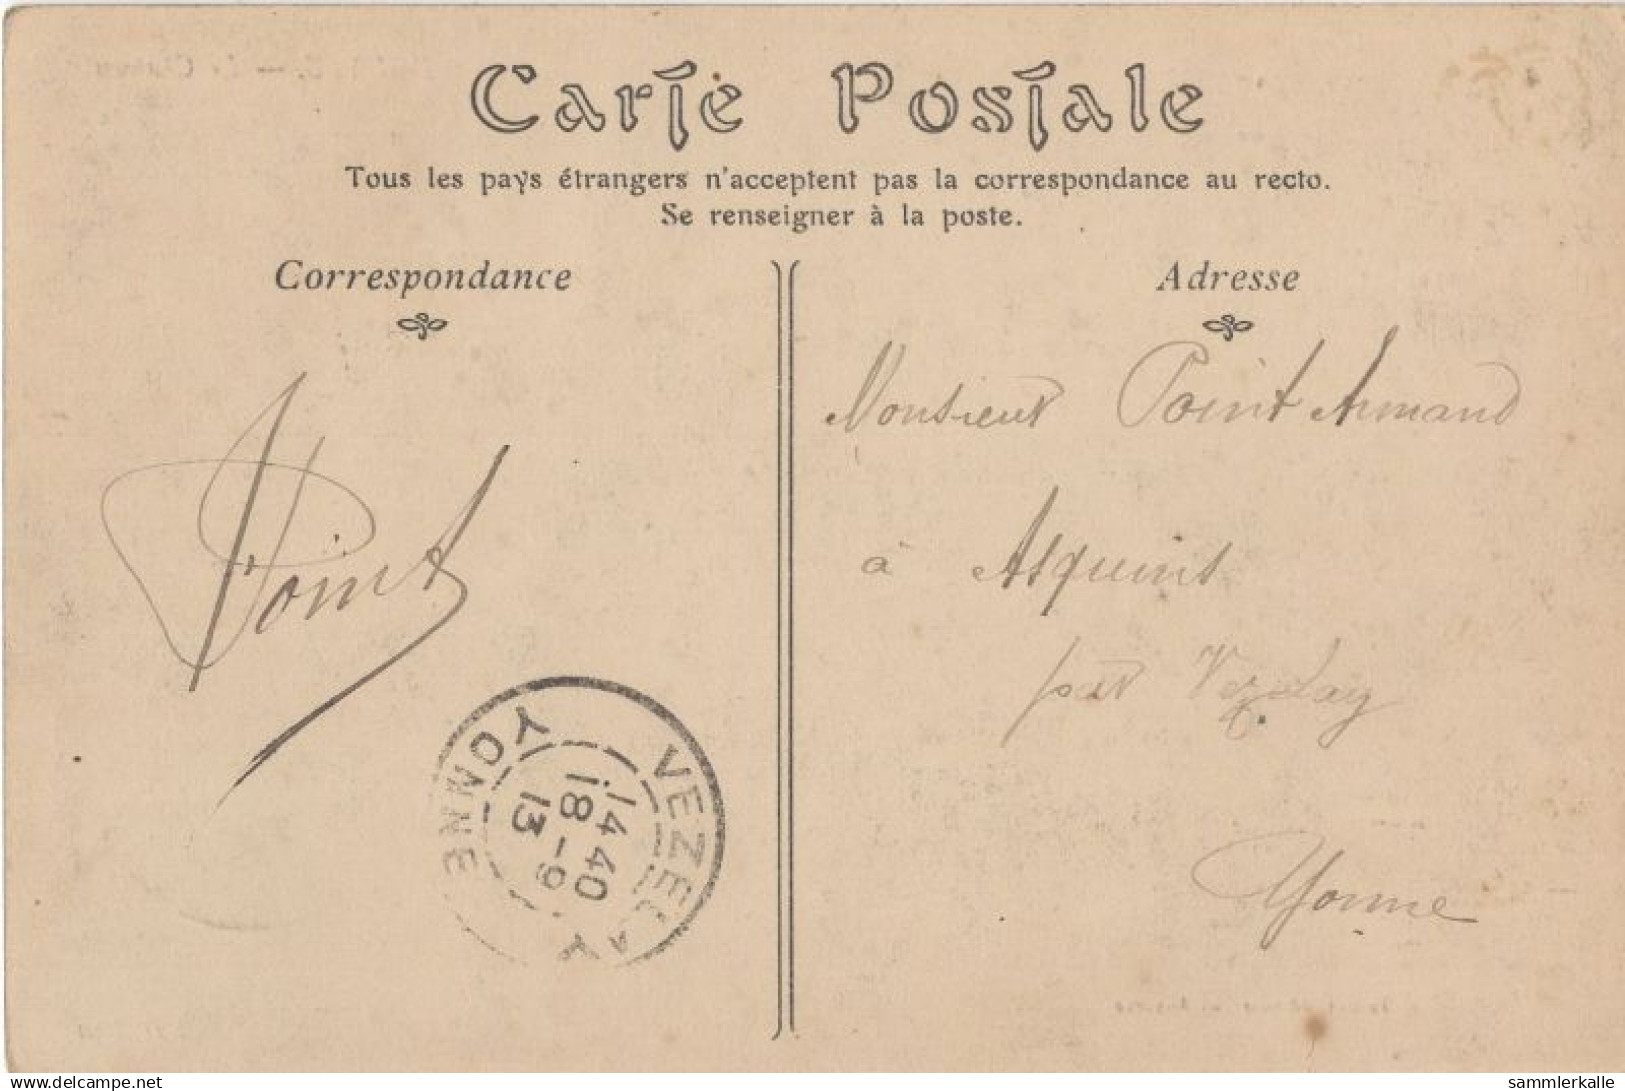 Carte Postale
Tous les pays étrangers n'acceptent pas la correspondance au recto.
Se renseigner à la poste.
Correspondance
Adresse
Monsieur Point Armand
à Asquins
par Vezelay
Yonne
Point
VEZELAY
YONNE
14 40
18 - 9
13
www.delcampe.net
sammlerkalle